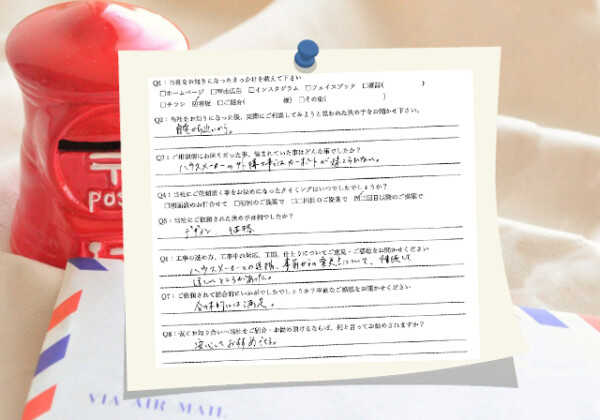 Q1：当社をお知りになったきっかけを教えて下さい
□ホームページ □Web広告 □インスタグラム □フェイスブック □雑誌( )
□チラシ ☑看板 □ご紹介( 様) □その他( )
Q2：当社をお知りになった後、実際にご相談してみようと思われた決め手をお聞かせ下さい。
自宅から近いから。
Q3：ご用御前にお困りだった事、悩まれていた事はどんな事でしたか？
ハウスメーカーの外構工事ではカーポートが建てられない。
Q4：当社にご依頼頂く事をお決めになったタイミングはいつでしたでしょうか？
□初回のご提案で □二回目のご提案で ☑三回目以降のご提案で
Q5：当社にご依頼された決め手は何でしたか？
デザイン、価格
Q6：工事の進め方、工事中の対応、工期、仕上りについてご意見・ご感想をお聞かせください
ハウスメーカーとの連携、事前からの
Q7：ご依頼されて総合的にいかがでしたでしょうか？率直なご感想をお聞かせください
全体的には満足。
Q8：仮にお知り合いへ当社をご紹介・お勧め頂けるならば、何と言ってお勧めされますか？
安心しておすすめできる。
POS
VIA AIR MAIL